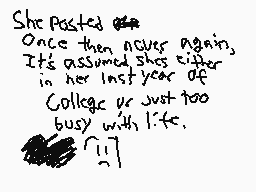 She posted
Once then never again,
It's assumed she's either
in her last year of
College or just too
busy with life.